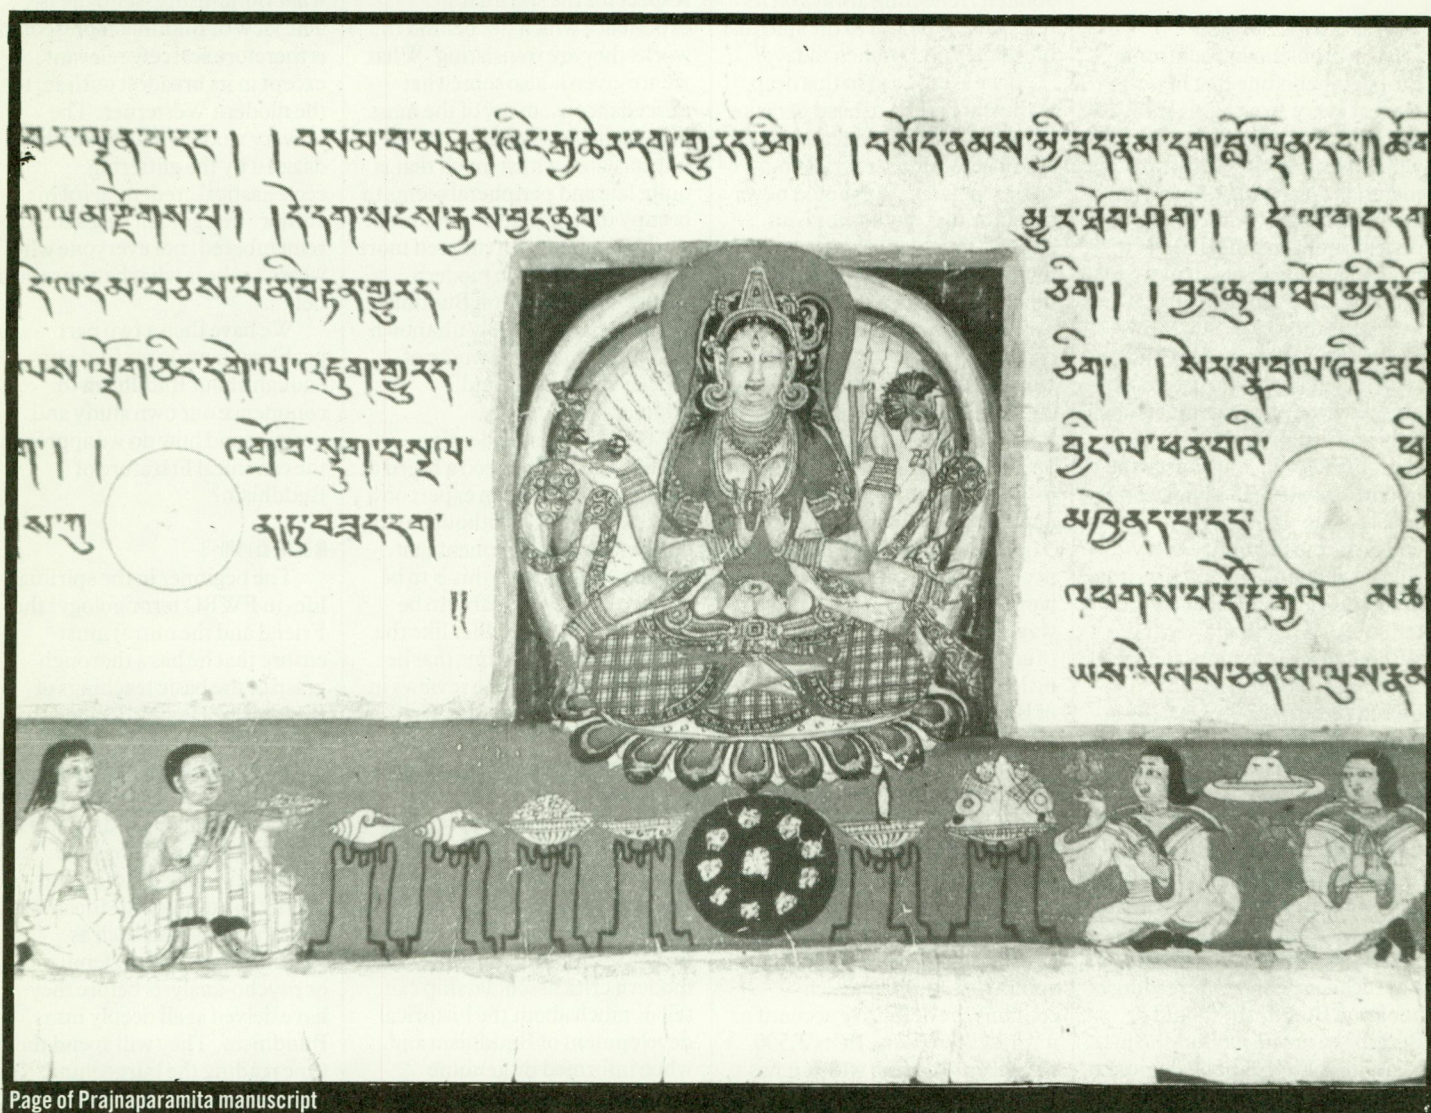 བར་ལྡན་བ་དང་། །བསམ་བ་མཐུན་ཞིང་རྒྱ་ཆེར་དག་གྱུརད་ཅིག། །བསོད་ནམས་མྱི་ཟད་རྣམ་དག་བློ་ལྡན་དང་།།
ག་ལམ་རྫོགས་པ། །དེ་དག་སངས་རྒྱས་བྱང་ཆུབ་ མྱུར་ཐོབ་ཤོག། །དེ་ལ་གང་དག
དེ་ལ་དམ་བཅས་པ་ནི་བརྟན་གྱུརད་ ཅིག། །བྱང་ཆུབ་ཐོབ་མྱིན་
ལས་ལྡོག་ཅིང་དགེ་ལ་འཇུག་གྱུརད་ ཅིག། །སེར་སྣ་བྲལ་ཞིང་ཟང
ག། ། འགྲོ་བ་སྡུག་བསྔལ་ བྱིང་ལ་ཕན་བའི་ ཕྱི
ས་ཀུ ན་ཏུ་བཟང་དག་ མཁྱེནད་པ་དང་
༎ འཕགས་པ་རྡོ་རྗེ་རྒྱལ མཚ
ཡས་སེམས་ཅན་མ་ལུས་རྣམ
Page of Prajnaparamita manuscript